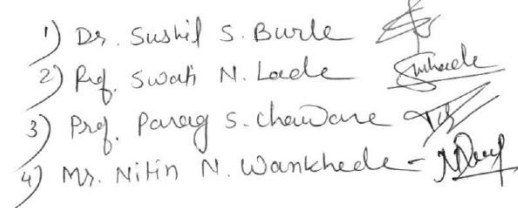 1) Dr. Sushil S. Burle
2) Prof. Swati N. Lade
3) Prof. Parag S. Chawane
4) Mr. Nitin N. Wankhede -